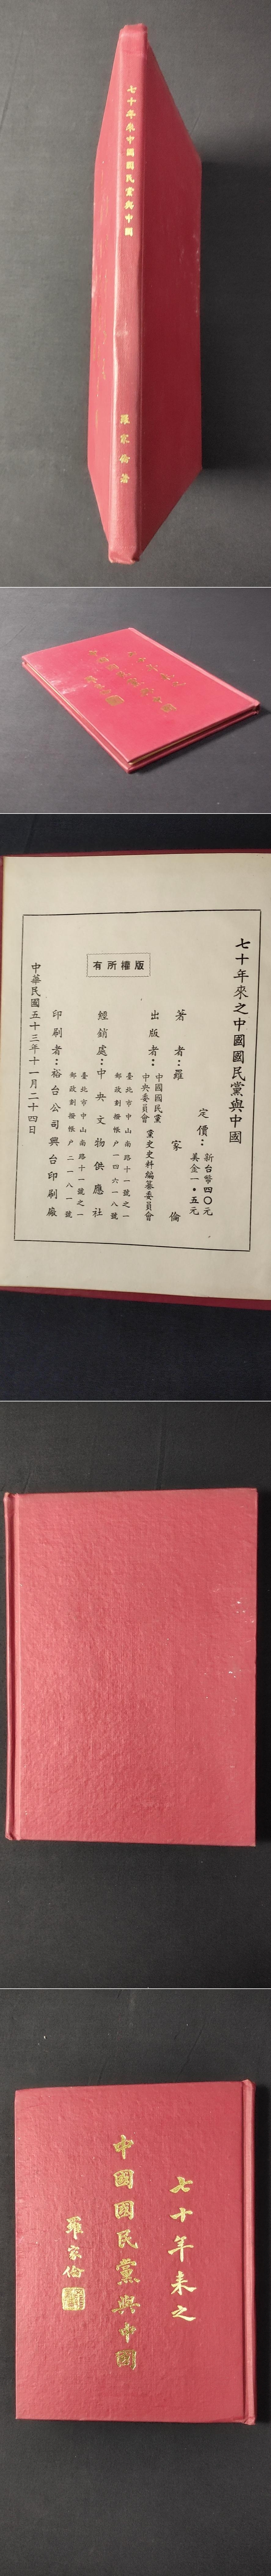 七十年來中國國民黨與中國
羅家倫著
七十年來之中國國民黨與中國
定價：新台幣四〇元
美金一・五元
著者：羅家倫
出版者：中國國民黨
中央委員會
黨史史料編纂委員會
臺北市中山南路十一號之一
郵政劃撥帳户一四六一八號
經銷處：中央文物供應社
臺北市中山南路十一號之一
郵政劃撥帳户二一八一號
印刷者：裕台公司興台印刷廠
中華民國五十三年十一月二十四日
版權所有
七十年来之
中國國民黨與中國
羅家倫